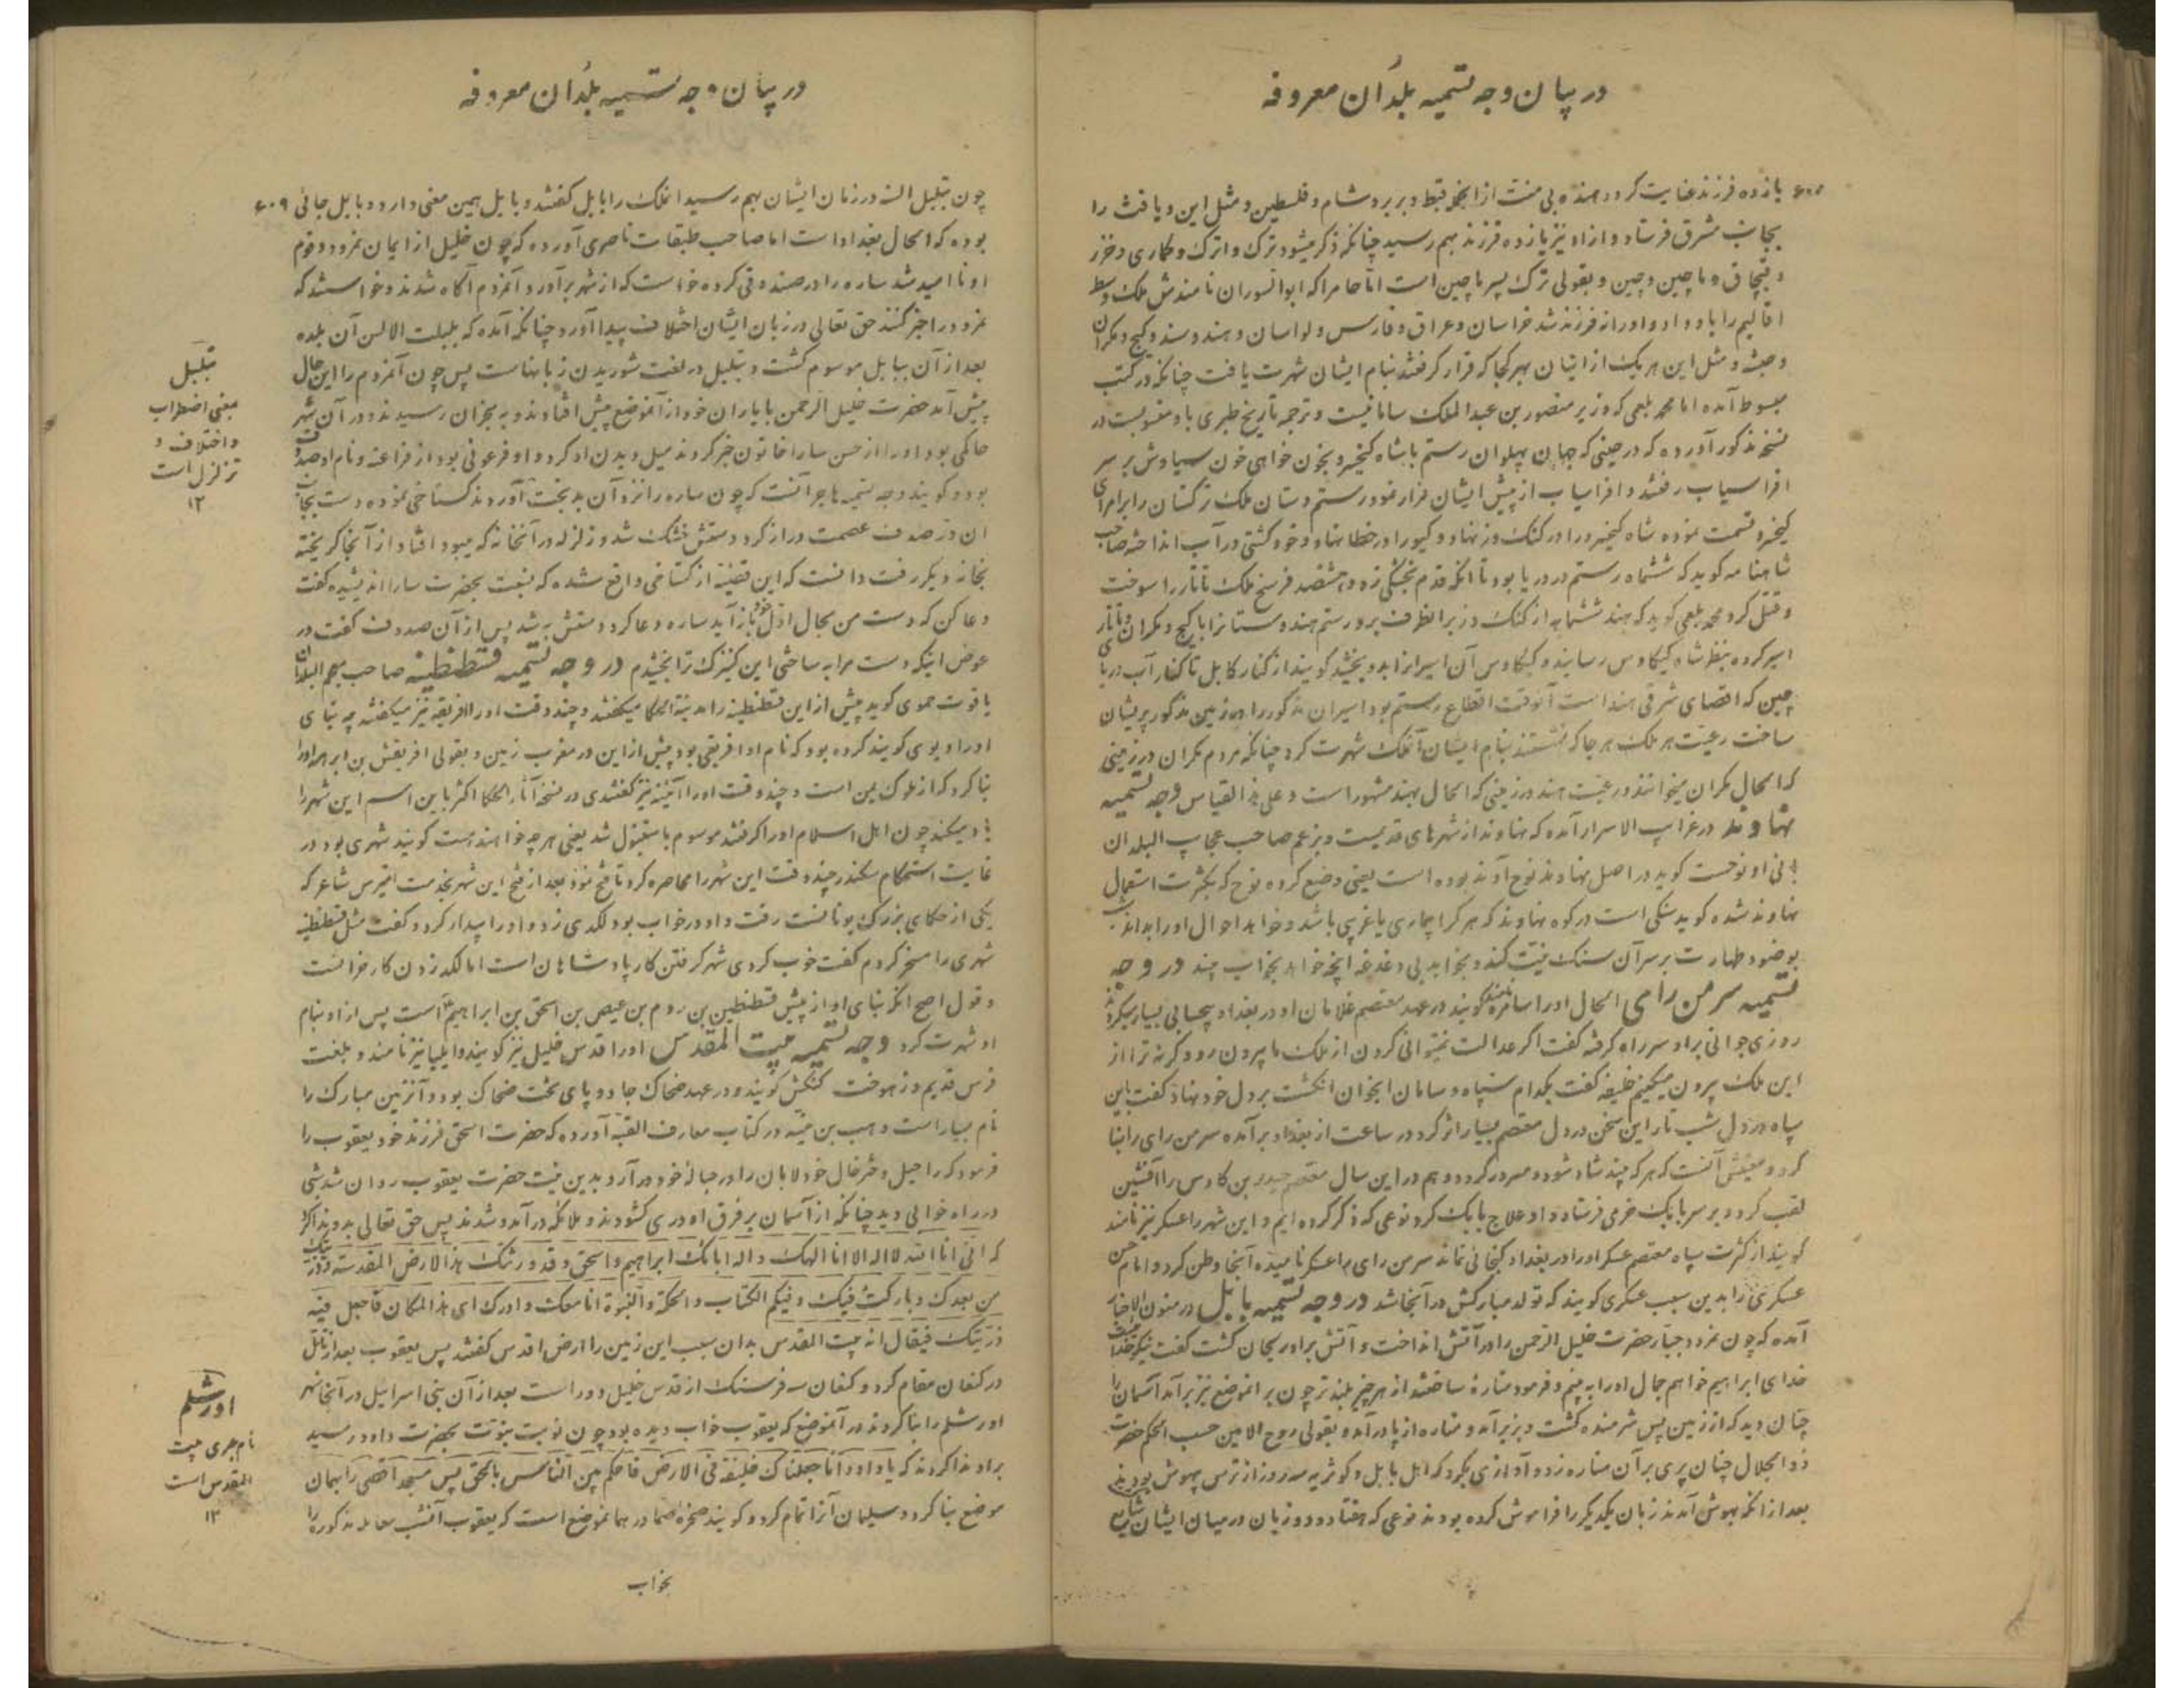 در بیان وجه تسمیه بلدان معروفه
یازده فرزند عنایت کرد در هند بی منت از انجمله قبط و بربر و شام و فلسطین و مثل این و یافث را
بجانب مشرق فرستاد و از او نیز یازده فرزند بهم رسید چنانکه ذکر میشود ترک و خزر
و قبچاق و ماچین و چین و بقولی ترک پسر ماچین است اما حام را که ابوالسوران نامندش ملک وسط
اقالیم را باو داد و او را نه فرزند شد خراسان و عراق و فارس و هند و سند و کیج و مکران
و حبشه و مثل این هر یک از ایشان بهر کجا که قرار گرفتند بنام ایشان شهرت یافت چنانکه در کتب
مبسوط آمده اما محمد بلعمی که وزیر منصور بن عبدالملک سامانیست و ترجمه تاریخ طبری باو منسوبست در
نسخه مذکور آورده که در حینی که جهان پهلوان رستم با شاه کیخسرو بخون خواهی خون سیاوش بر سر
افراسیاب رفتند و افراسیاب از پیش ایشان فرار نمود رستم دستان ملک ترکستان را برامرای
کیخسرو قسمت نموده شاه کیخسرو را در کنک دز نهاد و گیو را در خطا نهاد و خود کشتی در آب انداخته صاحب
شاهنامه گوید که ششماه رستم در دریا بود تا آنکه قدم بخشکی زد و هشتصد فرسخ ملک تاتار را سوخت
و قتل کرد محمد بلعمی گوید که هند ششماهه از کنک دز برانطرف برو رستم هندوستانرا با کیج و مکران و تاتار
اسیر کرده بنظر شاه کیکاوس رسانید و کیکاوس آن اسیرانرا بدو بخشید گویند از کنار کابل تا کنار آب دریای
چین که اقصای شرقی هند است آنوقت اقطاع رستم بود اسیران مذکور را در زمین مذکور پریشان
ساخت رعیت هر ملک هر جا که نشستند بنام ایشان آنملک شهرت کرد چنانکه مردم مکران در زمینی
که الحال مکران میخوانند و رعیت هند در زمینی که الحال بهند مشهور است و علی هذا القیاس وجه تسمیه
نهاوند در غرایب الاسرار آمده که نهاوند از شهرهای قدیمست و بزعم صاحب عجایب البلدان
بانی او نوحست گوید در اصل نهاوند نوح آوند بوده است یعنی وضع کرده نوح که بکثرت استعمال
نهاوند شده گوید سنگی است در کوه نهاوند که هر کرا بیماری یا غریبی باشد و خواهد احوال او را بداند
بوضو و طهارت بر سر آن سنگ نیت کند و بخوابد بی دغدغه آنچه خواهد بخواب بیند در وجه
تسمیه سر من رای الحال او را سامره گویند در عهد معتصم غلامان او در بغداد بیحسابی بسیار میکردند
روزی جوانی براو سر راه گرفته گفت اگر عدالت نمیتوانی کردن از ملک ما بیرون رو و گرنه ترا از
این ملک بیرون میکنیم خلیفه گفت بکدام سپاه و سامان انجوان انگشت بر دل خود نهاد گفت باین
سپاه در دل شب تار این سخن در دل معتصم بسیار اثر کرد در ساعت از بغداد برآمده سر من رای را بنا
کرد و معنیش آنست که هر که بیند شاد شود و مسرور گردد و هم در این سال معتصم حیدر بن کاوس را افشین
لقب کرد و بر سر بابک خرمی فرستاد و او علاج بابک کرد نوعی که ذکر کرده ایم و این شهر را عسکر نیز نامند
گویند از کثرت سپاه معتصم عسکر او را در بغداد گنجائی نماند سر من رای را عسکر نامیده آنجا وطن کرد و امام حسن
عسکری را بدین سبب عسکری گویند که تولد مبارکش در آنجا شد در وجه تسمیه بابل در متون الاخبار
آمده که چون نمرود جبار حضرت خلیل الرحمن را در آتش انداخت و آتش براو ریحان گشت گفت
خدای ابراهیم خواهم جمال او را به بینم و فرمود منارهٔ ساختند از هر چیز بلند تر چون بر انموضع نیز برآمد آسمان را
چنان دید که از زمین پس شرمنده گشت و بزیر آمد و مناره از پا درآمد و بقولی روح الامین حسب الحکم حضرت
ذوالجلال چنان پری بر آن مناره زد و آوازی بکرد که اهل بابل و کوثریه سه روز از ترس بیهوش بودند
بعد از آنکه بهوش آمدند زبان یکدیگر را فراموش کرده بودند نوعی که هفتاد و دو زبان در میان ایشان شایع
در بیان وجه تسمیه بلدان معروفه
۶۰۹
چون تبلبل السنه در زمان ایشان بهم رسید انملک را بابل گفتند و بابل همین معنی دارد و بابل جائی
بوده که الحال بغداد است اما صاحب طبقات ناصری آورده که چون خلیل از ایمان نمرود و قوم
او ناامید شد ساره را در صندوقی کرده خواست که از شهر برآورد آنمردم آگاه شدند و خواستند که
نمرود را خبر کنند حق تعالی در زبان ایشان اختلاف پیدا آورد چنانکه آمده که بلبلت الالسن آن بلده
بعد از آن ببابل موسوم گشت و تبلبل در لغت شوریدن زبانهاست پس چون آنمردم را این حال
پیش آمد حضرت خلیل الرحمن با یاران خود از آنموضع پیش افتادند و به بحران رسیدند و در آن شهر
حاکمی بود او را از حسن سارا خاتون خبر کردند میل دیدن او کرد و او فرعونی بود از فراعنه و نام او صدوف
بود و گویند وجه تسمیه هاجر آنست که چون ساره را نزد آن بدبخت آوردند گستاخی نموده دست بجانب
ان در صدف عصمت دراز کرد دستش خشک شد و زلزله در آنخانه که میبود افتاد از آنجا گریخته
بخانه دیگر رفت دانست که این قضیه از گستاخی واقع شده که بنسبت بحضرت سارا اندیشیده گفت
دعا کن که دست من بحال اول خود باز آید ساره دعا کرد دستش به شد پس از آن صدوف گفت در
عوض اینکه دست مرا به ساختی این کنیزک ترا بخشیدم در وجه تسمیه قسطنطنیه صاحب معجم البلدان
یاقوت حموی گوید پیش از این قسطنطنیه را مدینة الحکما میگفتند و چند وقت او را افریقیه نیز میگفتند چه بنای
او را دیوی گویند کرده بود که نام او افریقی بود پیش از این در مغرب زمین و بقولی افریقش بن ابرهه او را
بنا کرد که از ملوک یمن است و چند وقت او را آئینه نیز گفتندی در نسخه آثار الحکما اکثر باین اسم این شهر را
یاد میکند چون اهل اسلام او را گرفتند موسوم باستنبول شد یعنی هر چه خواهند هست گویند شهری بود در
غایت استحکام سکندر چند وقت این شهر را محاصره کرد تا فتح نمود بعد از فتح این شهر بخدمت شاعر که
یکی از حکمای بزرگ یونانست رفت و او در خواب بود لگدی زد و او را بیدار کرد و گفت مثل قسطنطنیه
شهری را مسخر کردم گفت خوب کردی شهر گرفتن کار پادشاهان است اما لگد زدن کار خرانست
و قول اصح آنکه بنای او از پیش قسطنطین بن روم بن عیص بن اسحق بن ابراهیم است پس از او بنام
او شهرت کرد وجه تسمیه بیت المقدس او را قدس خلیل نیز گویند و ایلیا نیز نامند و بلغت
فرس قدیم دز هوخت کنکش گویند و در عهد ضحاک جادو پای تخت ضحاک بود و آنزمین مبارک را
نام بسیار است وهب بن منبه در کتاب معارف القبه آورده که حضرت اسحق فرزند خود یعقوب را
فرمود که راحیل دختر خال خود لابان را در حبالهٔ خود درآرد بدین نیت حضرت یعقوب روان شد شبی
در راه خوابی دید چنانکه از آسمان بر فرق او دری گشودند و ملائکه در آمد و شدند پس حق تعالی بدو ندا کرد
که انی انا الله لااله الا انا الهک و اله ابائک ابراهیم و اسحق و قد ورثتک هذا الارض المقدسه و ذریتک
من بعدک و بارکت فیک و فیکم الکتاب و الحکمة و النبوة انا معک و ادرک ای هذا المکان فاجعل فیه
ذریتک فیقال انه بیت المقدس بدان سبب این زمین را ارض اقدس گفتند پس یعقوب بعد از تاهل
در کنعان مقام کرد و کنعان سه فرسنگ از قدس خلیل دور است بعد از آن بنی اسرائیل در آنجا شهر
اورشلم را بنا کردند در آنموضع که یعقوب خواب دیده بود چون نوبت بنوت بحضرت داود رسید
براو ندا کردند که یا داود انا جعلناک خلیفة فی الارض فاحکم بین الناس بالحق پس مسجد اقصی را بهمان
موضع بنا کرد و سلیمان آنرا تمام کرد و گویند صخره صما در همانموضع است که یعقوب آنشب معامله مذکوره را
بخواب
تبلبل
بمعنی اضطراب
و اختلاف و
تزلزل است
۱۲
اورشلم
نام عبری بیت
المقدس است
۱۲